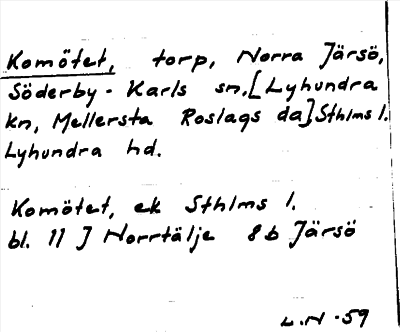 Komötet, torp, Norra Järsö,
Söderby-Karls sn, [Lyhundra
kn, Mellersta Roslags da] Sthlms l.
Lyhundra hd.
Komötet, ek Sthlms l.
bl. 11 J Norrtälje 8b Järsö
L.N -59